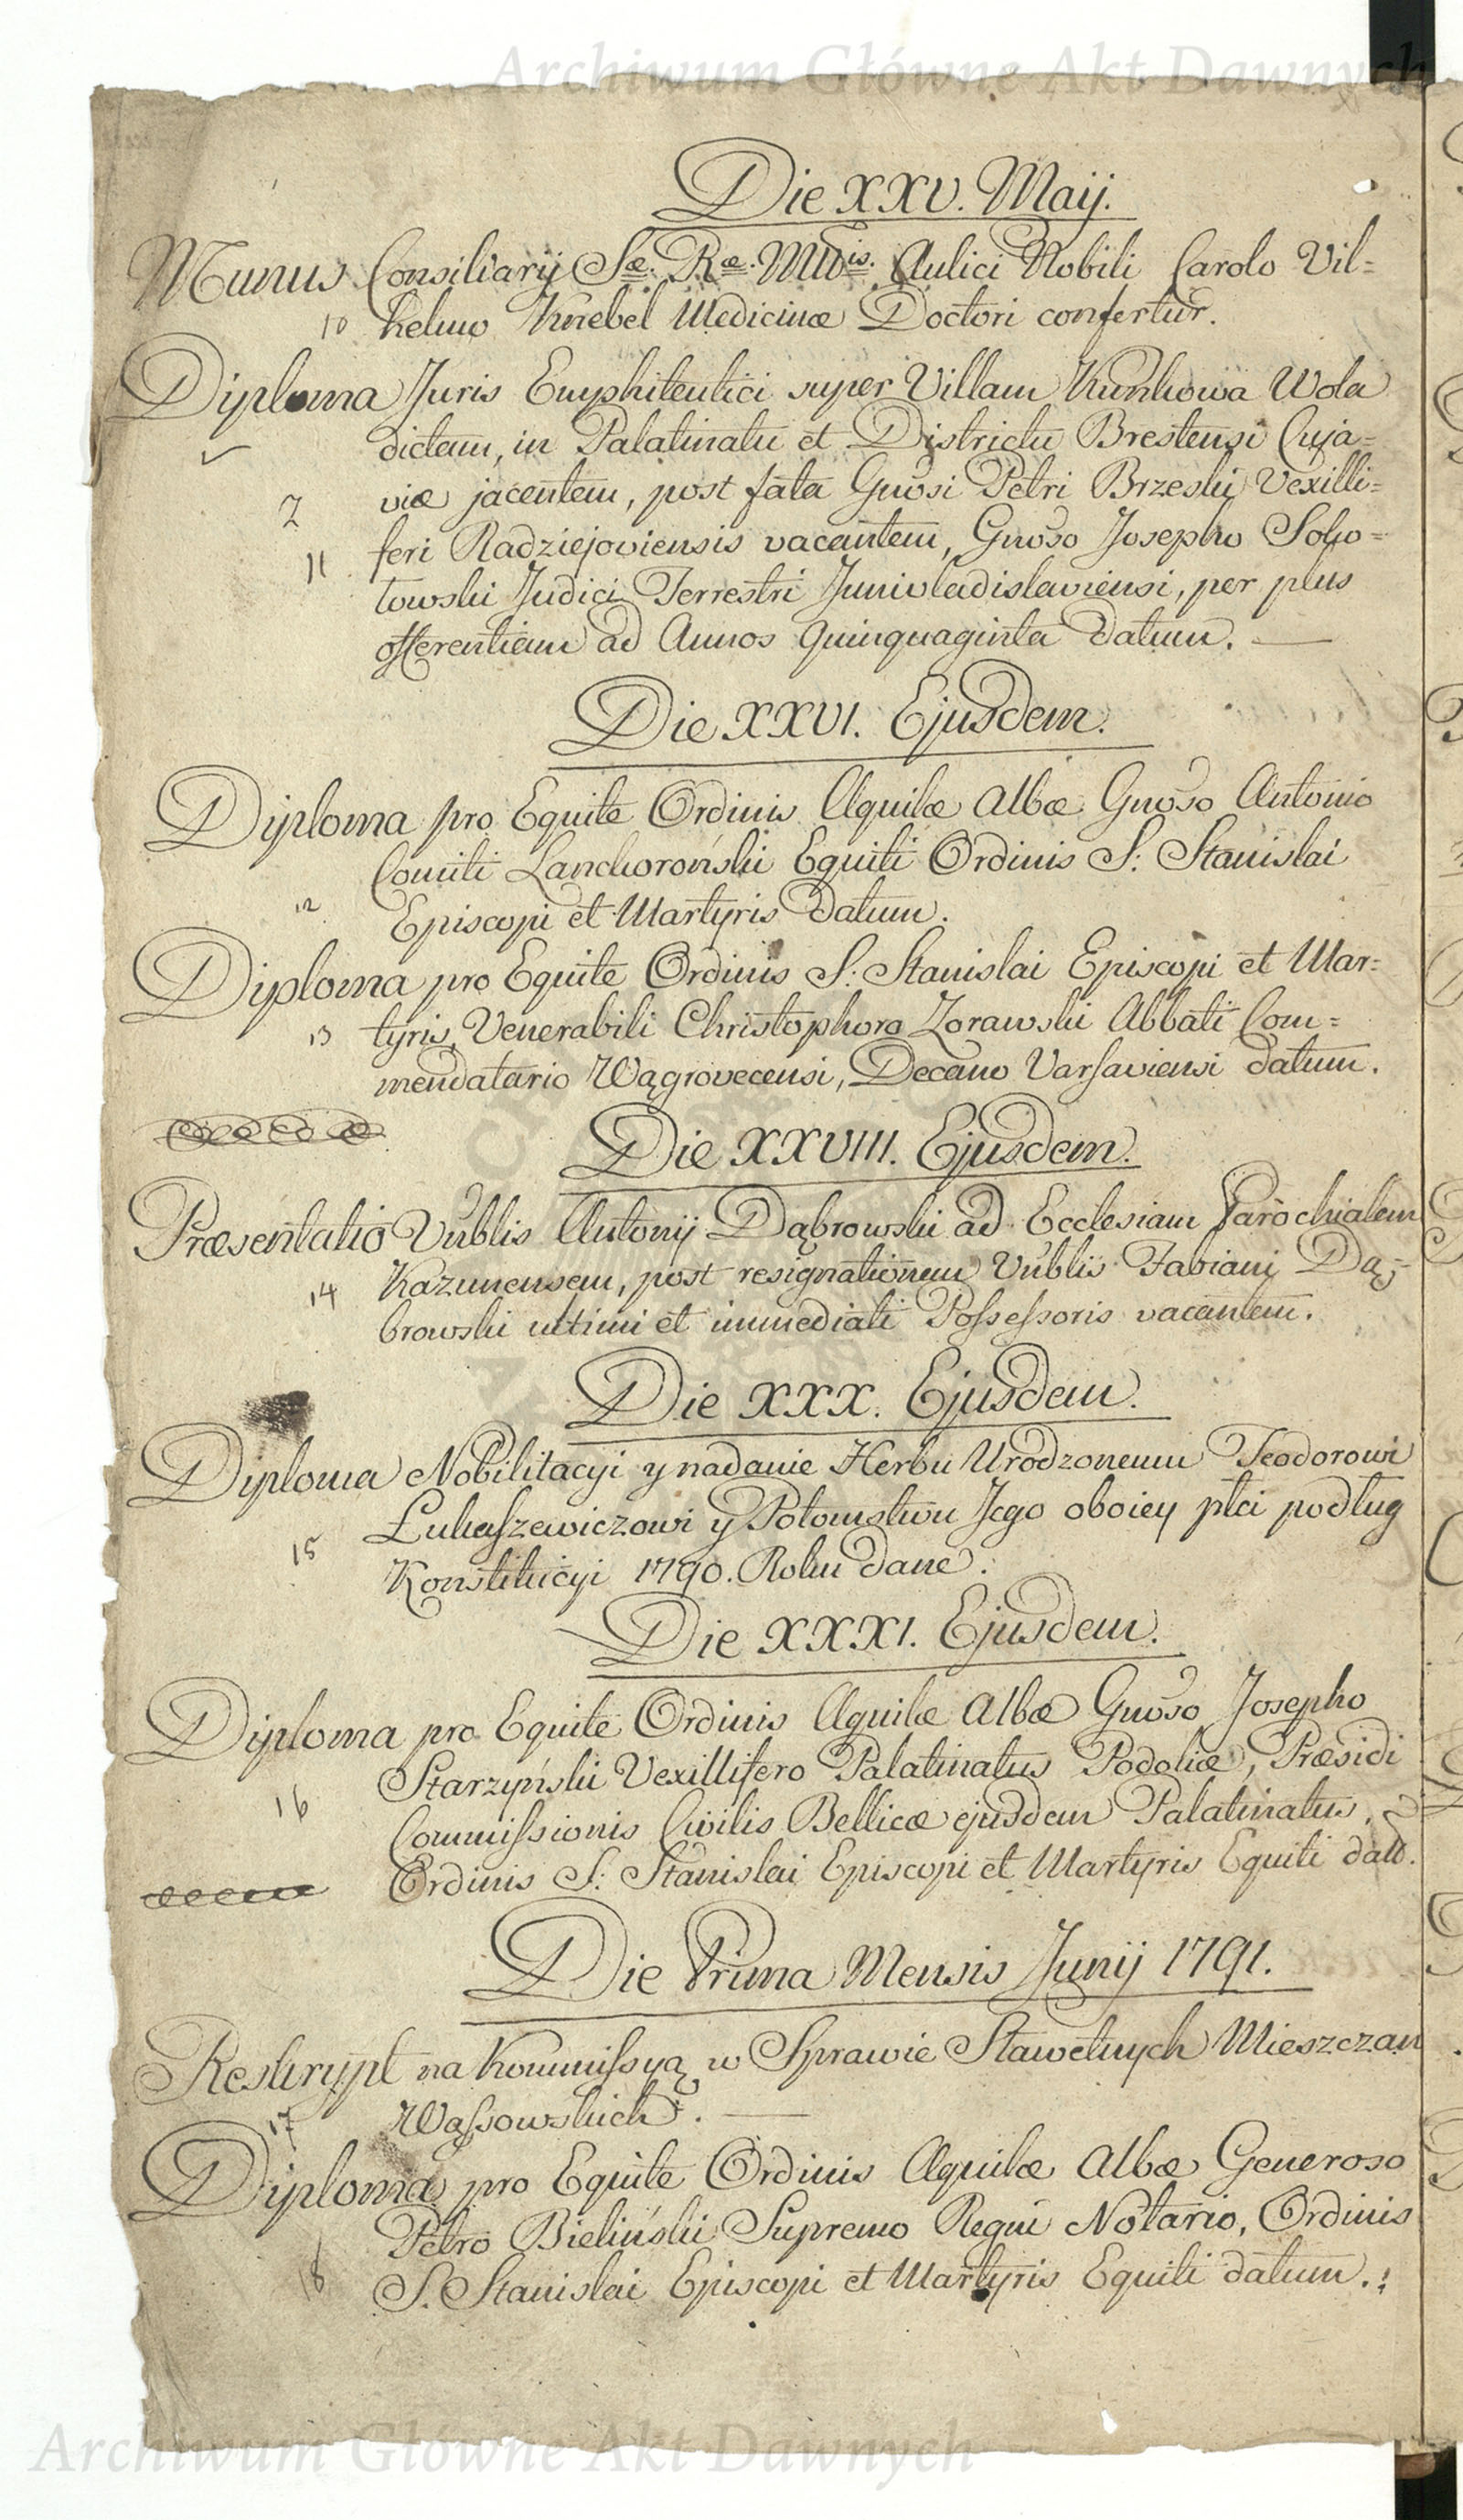 Archiwum Główne Akt Dawnych
Die XXV. Maij.
Munus Consiliarij Sæ. Ræ. Mtis. Aulici Nobili Carolo Vil=
10 helmo Knebel Medicinæ Doctori confertur.
Diploma Juris Emphiteutici super Villam Kunkowa Wola
dictam, in Palatinatu et Districtu Brestensi Cuja=
2 viæ jacentem, post fata Gnosi Petri Brzeski Vexilli=
11 feri Radziejoviensis vacantem, Gnoso Josepho Soko=
łowski Judici Terrestri Junivladislaviensi, per plus
offerentiam ad Annos quinquaginta datum.
Die XXVI. Ejusdem.
Diploma pro Equite Ordinis Aquilæ Albæ Gnoso Antonio
Comiti Lanckoroński Equiti Ordinis S: Stanislai
12 Episcopi et Martyris datum.
Diploma pro Equite Ordinis S: Stanislai Episcopi et Mar=
13 tyris, Venerabili Christophoro Zorawski Abbati Com=
mendatario Wągrovecensi, Decano Varsaviensi datum.
Die XXVIII. Ejusdem.
Præsentatio Vnblis Antonij Dąbrowski ad Ecclesiam Parochialem
14 Kazunensem, post resignationem Vnblis Fabiani Dą=
browski ultimi et immediati Possessoris vacantem.
Die XXX. Ejusdem.
Diploma Nobilitacyi y nadanie Herbu Urodzonemu Teodorowi
Łukaszewiczowi y Potomstwu Jego oboiey płci podług
15 Konstitucyi 1790. Roku dane.
Die XXXI. Ejusdem.
Diploma pro Equite Ordinis Aquilæ Albæ Gnoso Josepho
Starzyński Vexillifero Palatinatus Podoliæ, Præsidi
16 Commissionis Civilis Bellicæ ejusdem Palatinatus,
Ordinis S: Stanislai Episcopi et Martyris Equiti datt.
Die Prima Mensis Junij 1791.
Reskrypt na Kommissyą w Sprawie Sławetnych Mieszczan
17 Wąssowskich.
Diploma pro Equite Ordinis Aquilæ Albæ Generoso
Petro Bieliński Supremo Regni Notario, Ordinis
18 S. Stanislai Episcopi et Martyris Equiti datum.
Archiwum Główne Akt Dawnych